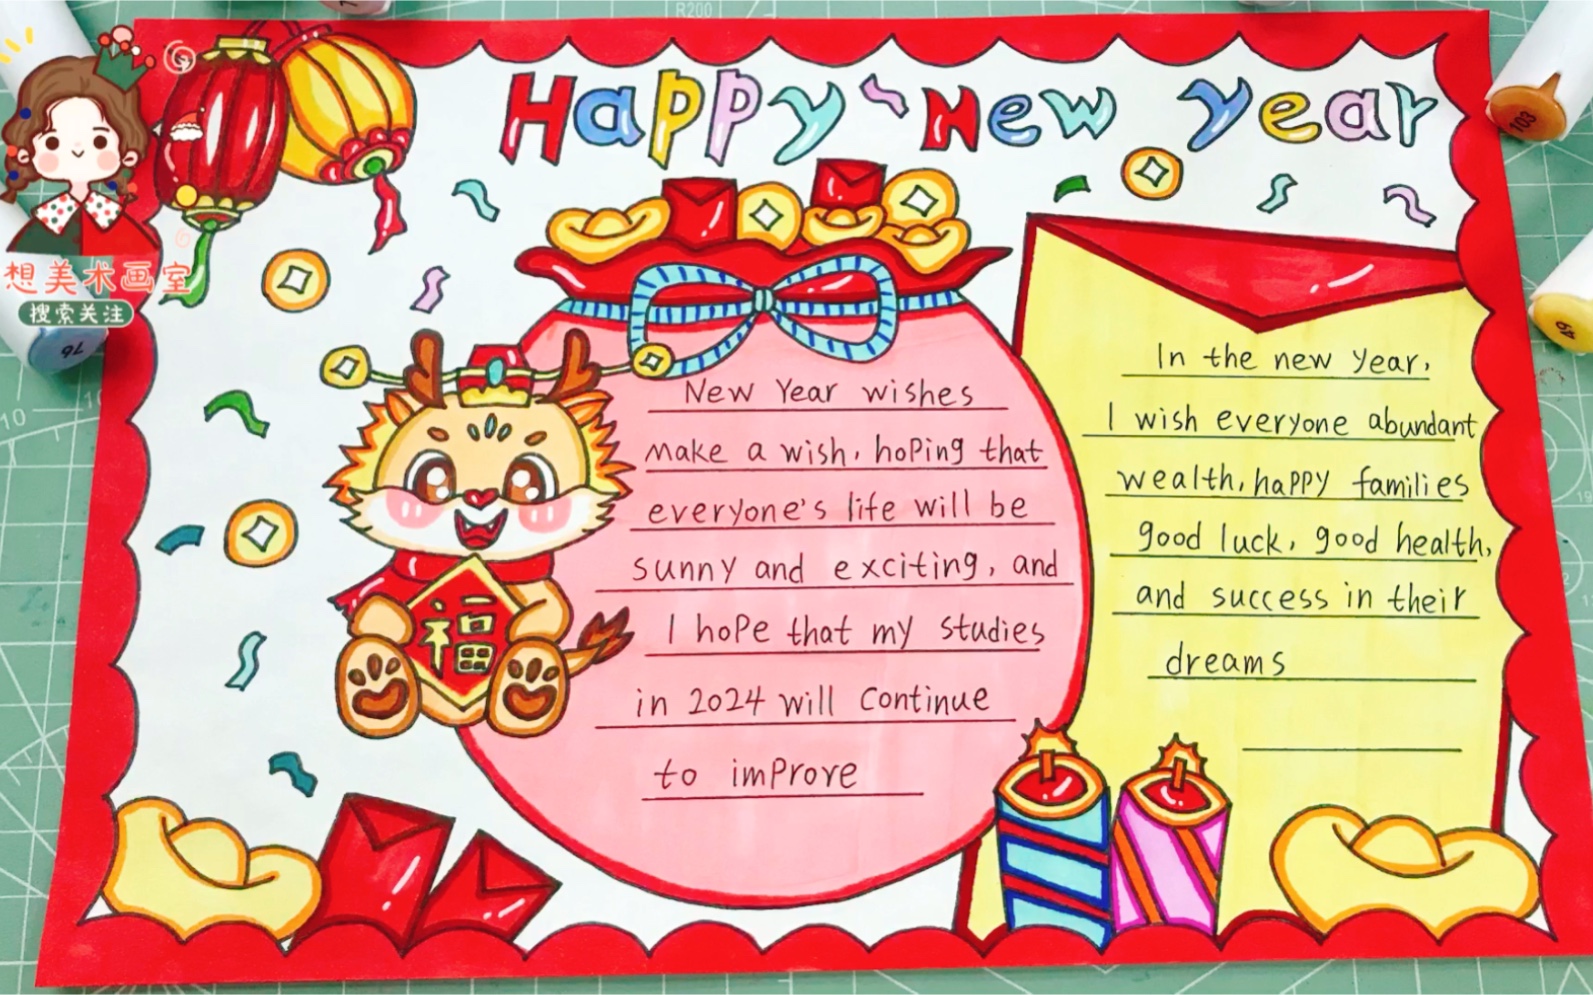 R200
Happy New Year
想美术画室
搜索关注
103
49
76
10
New Year wishes
make a wish, hoping that
everyone's life will be
sunny and exciting, and
I hope that my studies
in 2024 will continue
to improve
福
In the new year,
I wish everyone abundant
wealth, happy families
good luck, good health,
and success in their
dreams